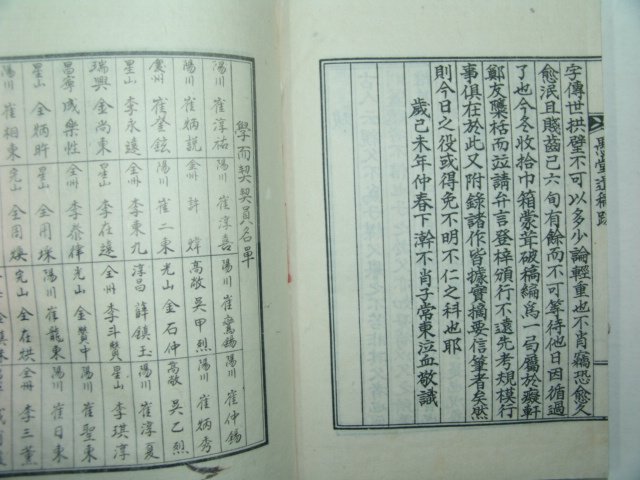 愚堂遺稿跋
字傳世拱璧不可以多少論輕重也不肖竊恐愈久
愈泯且賤齒已六旬有餘而不可等待他日因循過
了也今冬收拾巾箱蒙茸破稿編爲一局屬於癡軒
鄭友隳枯而涖請弁言登梓頒行不遠先考規模行
事俱在於此又附錄諸作皆據實摘要信筆者矣然
則今日之役或得免不明不仁之科也耶
歲己未年仲春下澣不肖子常東泣血敬識
學而契契員名單
陽川 崔淳祐 陽川 崔淳喜 陽川 崔鸞錫 陽川 崔仲錫
陽川 崔炳説 金州 許煒 高敞 吳甲烈 陽川 崔炳秀
慶州 崔鉉 陽川 崔二東 光山 金石仲 高敞 吳乙烈
星山 李永遠 陽川 李東九 淳昌 薛鎮玉 陽川 崔淳夏
瑞興 金尚東 星山 李在遠 全州 李斗贊 星山 李琪淳
昌寧 成樂性 全州 李泰律 光山 金贊中 陽川 崔聖東
星山 金炳昨 星山 金周珠 陽川 崔龍東 陽川 崔日東
陽川 崔相東 光山 金周煥 光山 金在烘 全州 李三薰